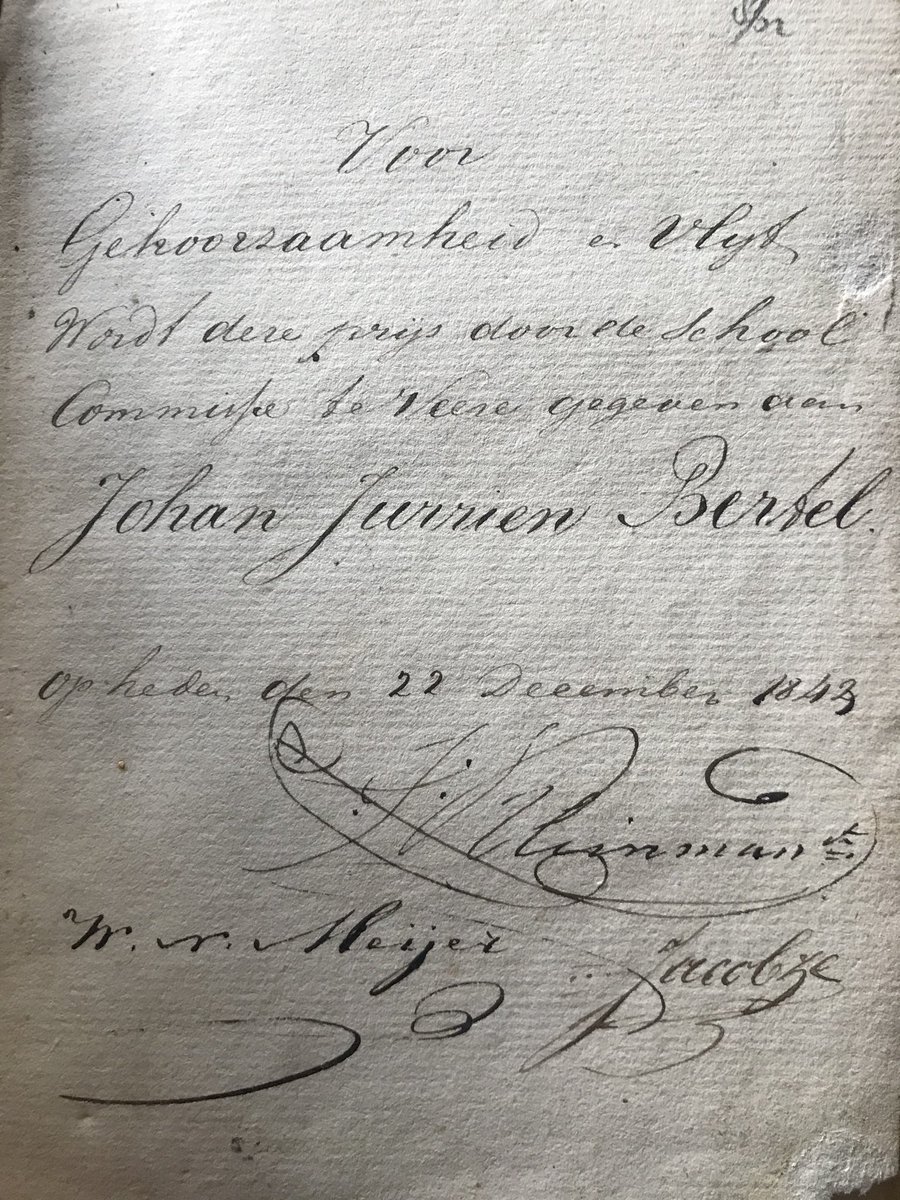 Voor
Gehoorzaamheid en Vlyt
Wordt deze prijs door de School
Commissie te Veere gegeven aan
Johan Jurrien Bertel.
op heden den 22 December 1843
W. N. Meijer
Jacobze